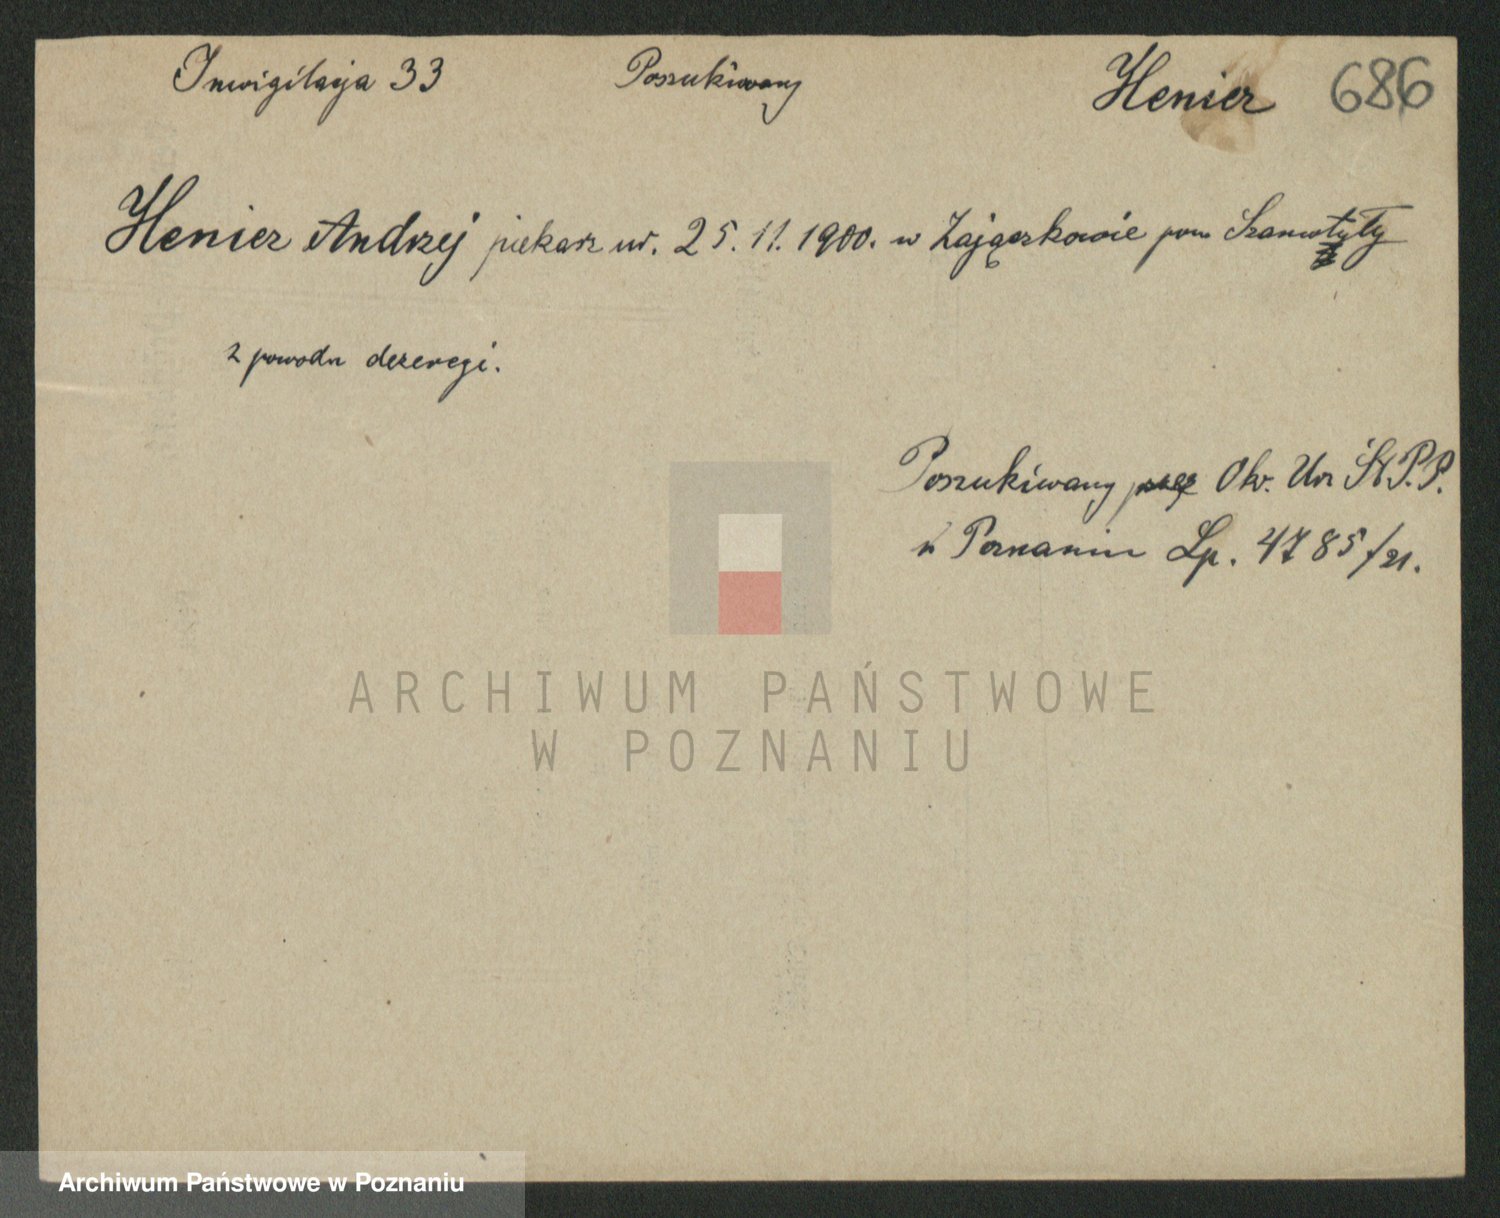 Inwigilacja 33 Poszukiwany Henier 686
Henier Andrzej piekarz ur. 25.11.1900. w Zajączkowie pow Szamotyły
z powodu dezercgi.
Poszukiwany przez Okr. Urz Śl. P.P.
w Poznaniu Lp. 4785/21.
ARCHIWUM PAŃSTWOWE
W POZNANIU
Archiwum Państwowe w Poznaniu